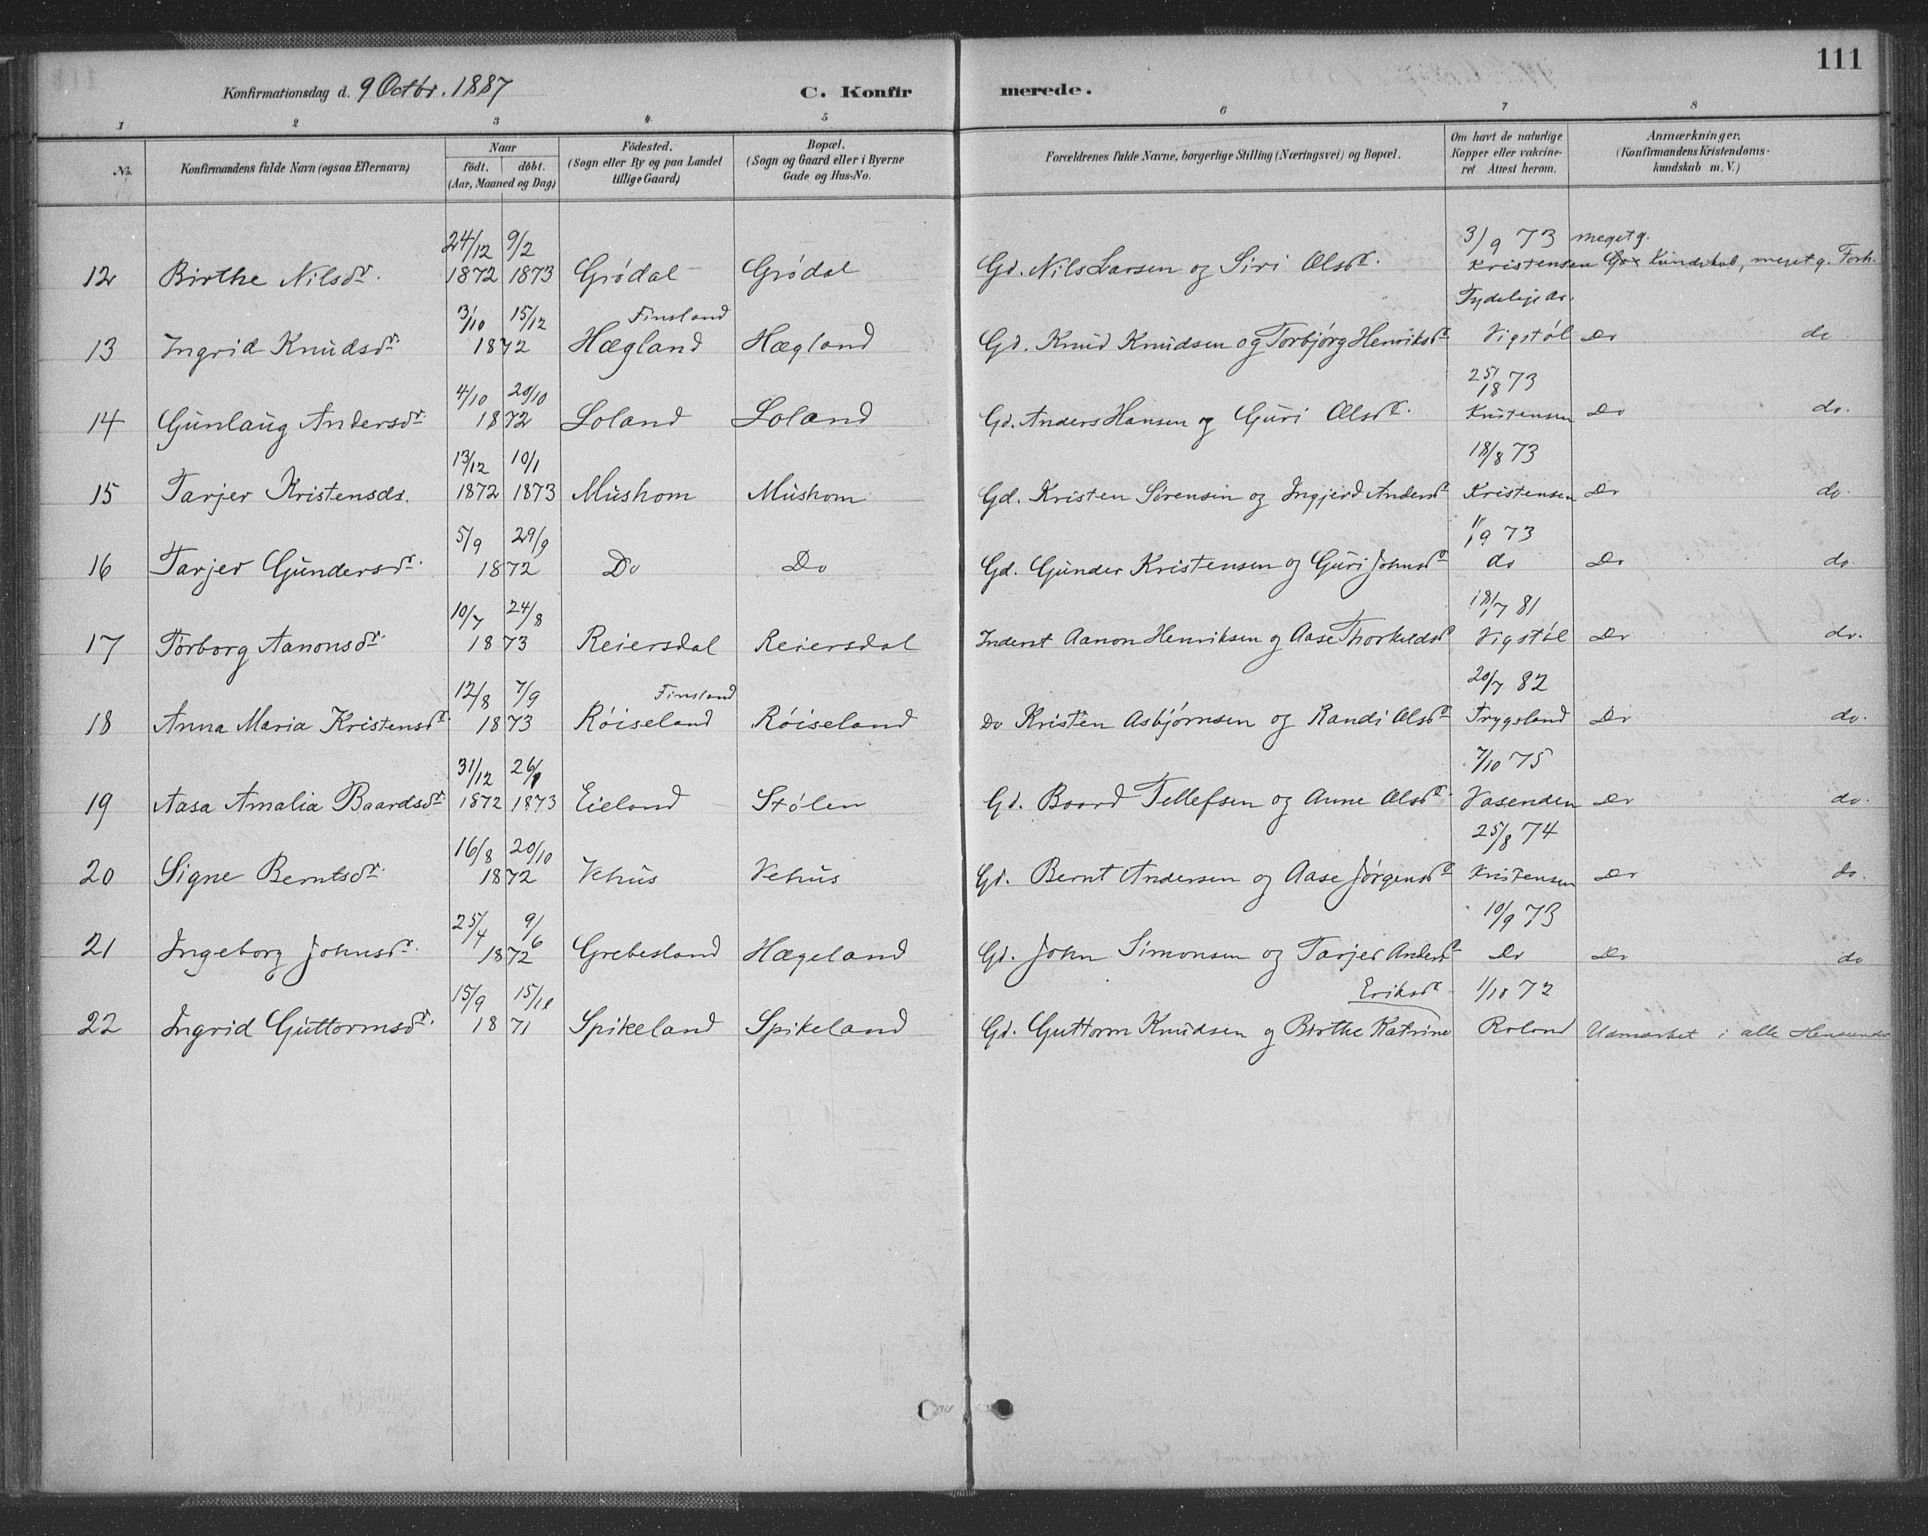 111
Konfirmationsdag d. 9 Octbr. 1887 C. Konfirmerede.
1 2 3 4. 5 6 7 8
No. Konfirmandens fulde Navn (ogsaa Efternavn) Naar födt. döbt. (Aar, Maaned og Dag) Födested. (Sogn eller By og paa Landet tillige Gaard) Bopæl. (Sogn og Gaard eller i Byerne Gade og Hus-No. Forældrenes fulde Navne, borgerlige Stilling (Næringsvei) og Bopæl. Om havt de naturlige Kopper eller vakcineret Attest herom. Anmærkninger. (Konfirmandens Kristendomskundskab m. V.)
24/12 9/2 3/9 73 meget g.
12 Birthe Nilsdr. 1872 1873 Grödal Grödal Gd. Nils Larsen og Siri Olsdr. Kristensen Kundskab, meget g. Forh.
3/10 15/12 Finsland
13 Ingrid Knudsdr. 1872 Hægland Hægland Gd. Knud Knudsen og Torbjörg Henriksdr Vigstöl Do do
4/10 20/10 73
14 Gunlaug Andersdr 1872 Loland Loland Gd. Anders Hansen og Guri Olsdr. Kristensen Do do.
13/12 10/1 18/8 73
15 Tarjer Kristensdr. 1872 1873 Mushom Mushom Gd. Kristen Sörensen og Ingjerd Andersdr Kristensen Do do.
5/9 29/9 73
16 Tarjer Gundersdr. 1872 Do Do Gd. Gunder Kristensen og Guri Johnsdr do Do do.
10/7 24/8 18/7 81
17 Torborg Aanonsdr. 1873 Reiersdal Reiersdal Inderst Aanon Henriksen og Aase Thorkeldsdr Vigstöl Do do.
12/8 7/9 Finsland 20/7 82
18 Anna Maria Kristensdr. 1873 Röiseland Röiseland Do Kristen Asbjörnsen og Randi Olsdr Trygsland Do do.
31/12 26/1 7/10 75
19 Aasa Amalia Baardsdr 1872 1873 Eieland Stölen Gd. Baard Tellefsen og Anne Olsdr. Vasenden Do do.
16/8 20/10 25/8 74
20 Signe Berntsdr. 1872 Vehus Vehus Gd. Bernt Andersen og Aase Jörgensdr Kristensen Do do.
25/4 9/6 10/9 73
21 Ingeborg Johnsdr. 1872 Grebesland Hægeland Gd. John Simonsen og Tarjer Andersdr Do Do do
15/9 15/10 Eriksdr 1/10 72
22 Ingrid Guttormsdr. 1871 Spikeland Spikeland Gd. Guttorm Knudsen og Birthe Katrine Roland Udmærket i alle Henseender